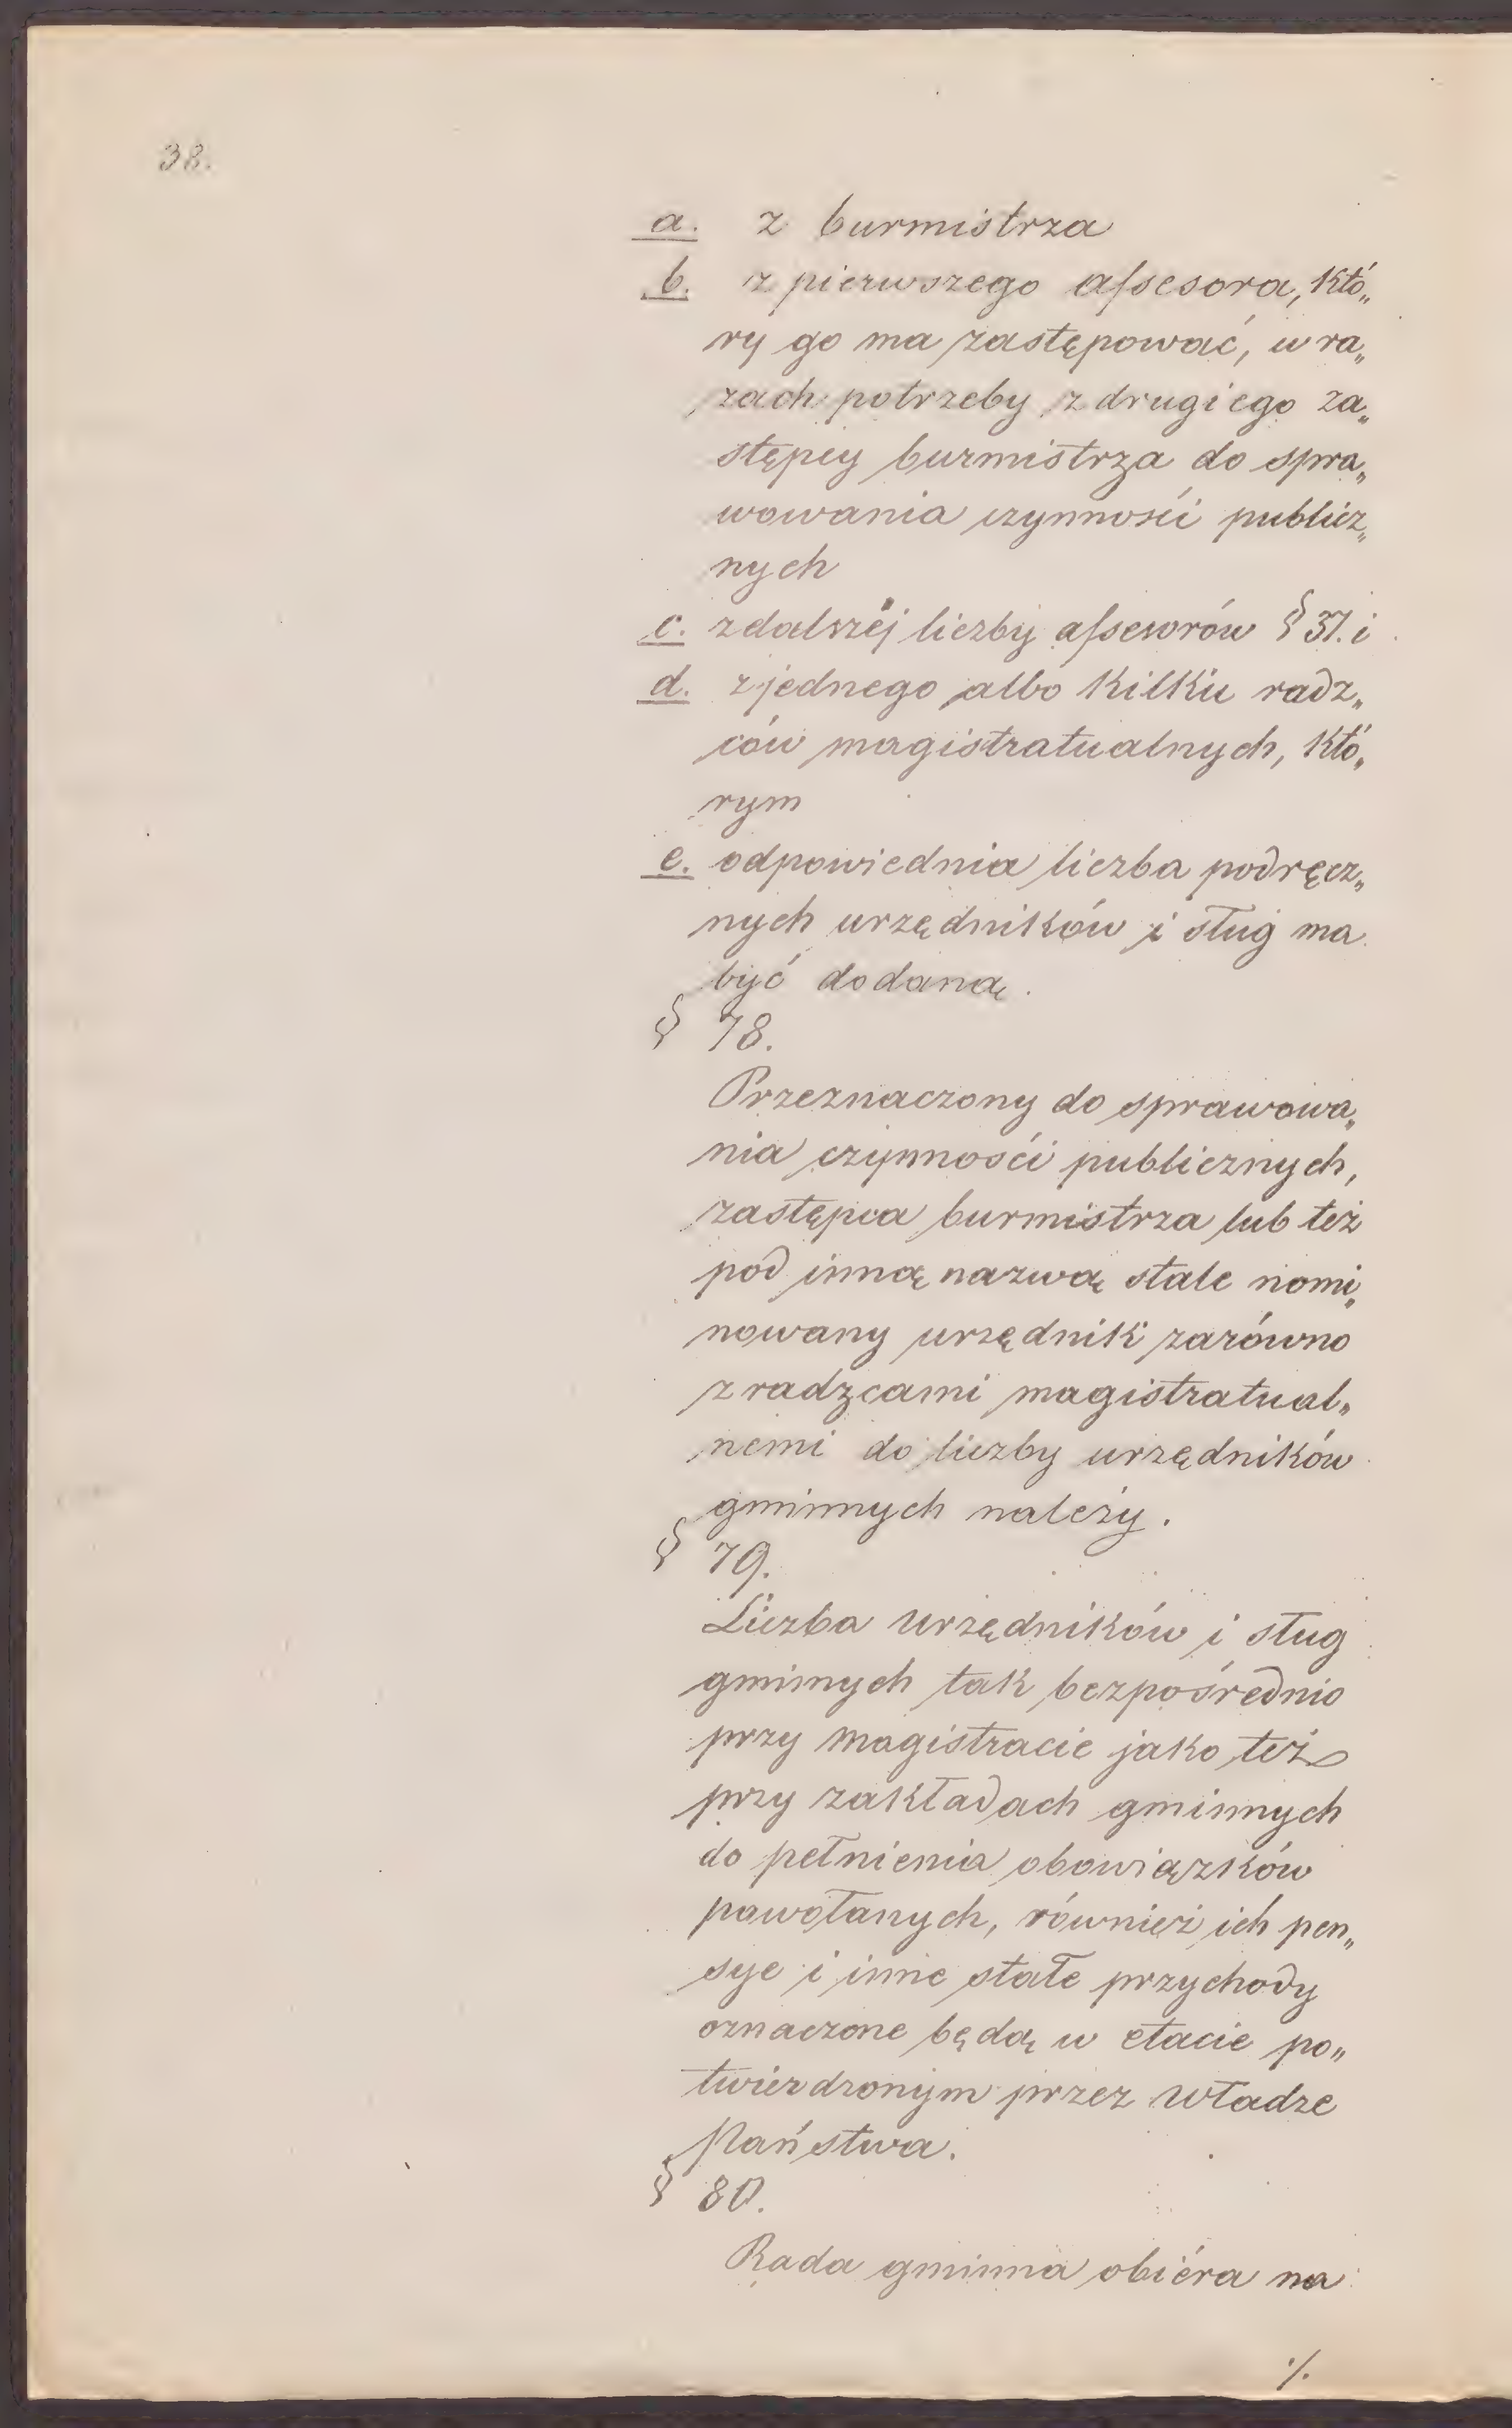 38.
a. z burmistrza
b. z pierwszego aſsesora, któ„
ry go ma zastępować, w ra„
zach potrzeby z drugiego za„
stępcy burmistrza do spra„
wowania czynnośći publicz„
nych
c. z dalszéj liczby aſsesorów § 37. i
d. z jednego albo kilku radz„
ców magistratualnych, któ„
rym
e. odpowiednia liczba podręcz„
nych urzędników i sług ma
być dodaną.
§ 78.
Przeznaczony do sprawowa„
nia czynnośći publicznych,
zastępca burmistrza lub też
pod inną nazwą stale nomi„
nowany urzędnik zarówno
z radzcami magistratual„
nemi do liczby urzędników
gminnych należy.
§ 79.
Liczba urzędników i sług
gminnych tak bezpośrednio
przy magistracie jako też
przy zakładach gminnych
do pełnienia obowiązków
powołanych, również ich pen„
sye i inne stałe przychody
oznaczone będą w etacie po„
twierdzonym przez władze
Państwa.
§ 80.
Rada gminna obiéra na
./.